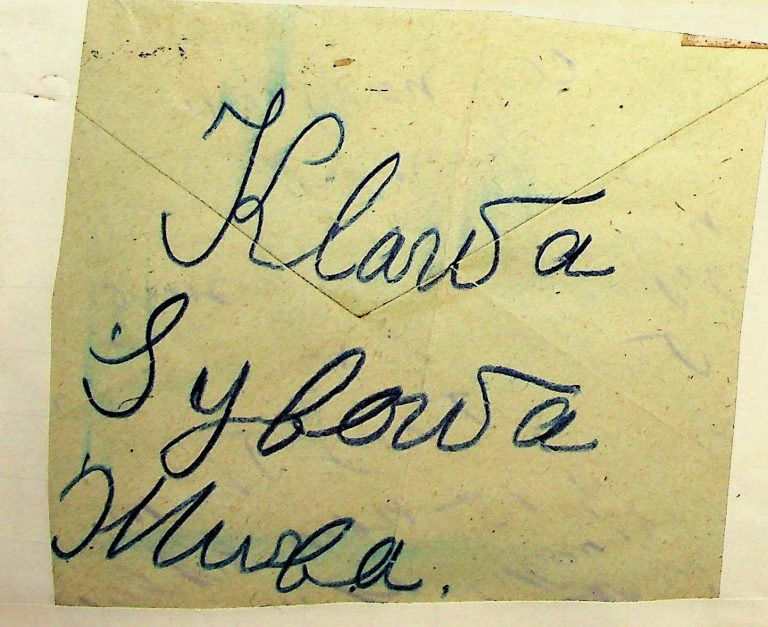 Klawa
Sybowa
Жива.